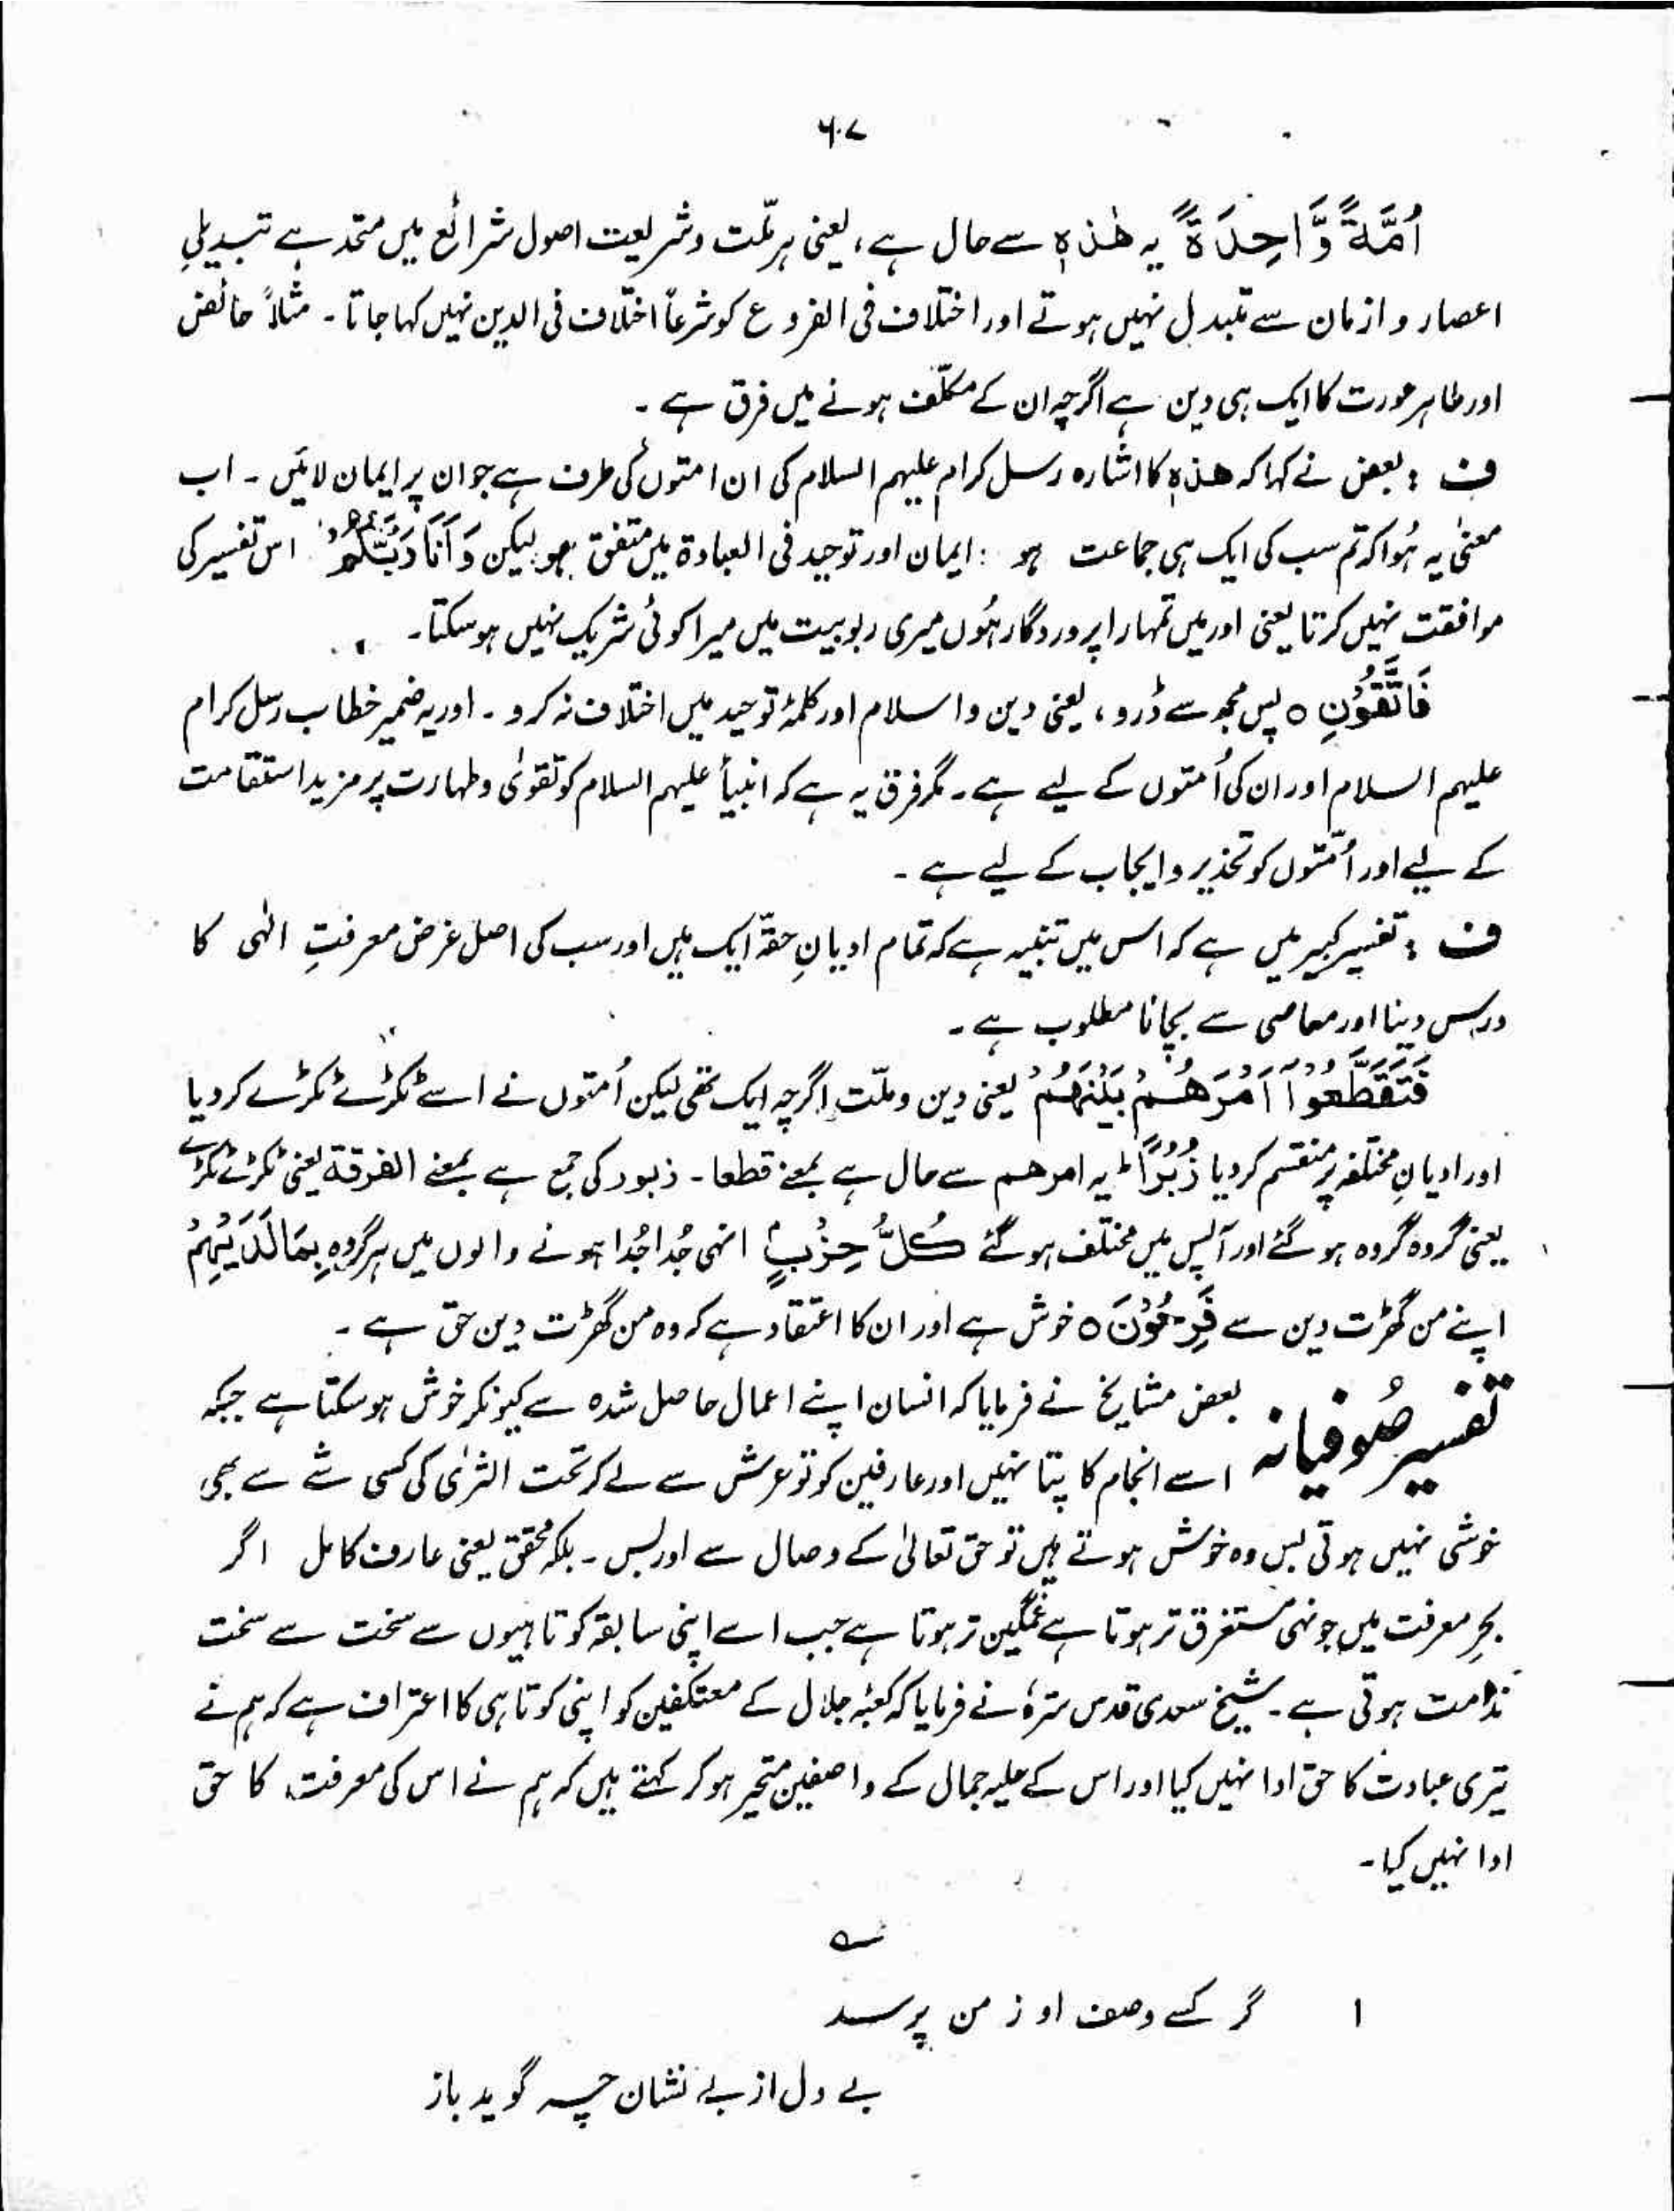 ۶۰۷
اُمَّةً وَّاحِدَةً یہ ھٰذہٖ سے حال ہے، یعنی ہر ملّت و شریعت اصول شرائع میں متحد ہے تبدیلیِ
اعصار و ازمان سے متبدل نہیں ہوتے اور اختلاف فی الفروع کو شرعاً اختلاف فی الدین نہیں کہا جاتا ۔ مثلاً حائض
اور طاہر عورت کا ایک ہی دین ہے اگرچہ ان کے مکلّف ہونے میں فرق ہے ۔
ف : بعض نے کہا کہ ھٰذہٖ کا اشارہ رسل کرام علیہم السلام کی ان امتوں کی طرف ہے جو ان پر ایمان لائیں ۔ اب
معنٰی یہ ہُوا کہ تم سب کی ایک ہی جماعت ہو : ایمان اور توحید فی العبادۃ میں متفق ہو لیکن وَ اَنَا رَبُّکُمْ اس تفسیر کی
موافقت نہیں کرتا یعنی اور میں تمہارا پروردگار ہُوں میری ربوبیت میں میرا کوئی شریک نہیں ہو سکتا۔
فَاتَّقُوْنِ ○ پس مجھ سے ڈرو ، یعنی دین و اسلام اور کلمۂ توحید میں اختلاف نہ کرو ۔ اور یہ ضمیر خطاب رسل کرام
علیہم السلام اور ان کی اُمتوں کے لیے ہے ۔ مگر فرق یہ ہے کہ انبیأ علیہم السلام کو تقوٰی و طہارت پر مزید استقامت
کے لیے اور اُمّتوں کو تحذیر و ایجاب کے لیے ہے ۔
ف : تفسیر کبیر میں ہے کہ اس میں تنبیہ ہے کہ تمام ادیانِ حقّہ ایک ہیں اور سب کی اصل غرض معرفتِ الٰہی کا
درس دینا اور معاصی سے بچانا مطلوب ہے ۔
فَتَقَطَّعُوْٓا اَمْرَھُمْ بَیْنَھُمْ یعنی دین و ملّت اگرچہ ایک تھی لیکن اُمتوں نے اسے ٹکڑے ٹکڑے کر دیا
اور ادیانِ مختلفہ پر منقسم کر دیا زُبُرًا ط یہ امرھم سے حال ہے بمعنے قطعا ۔ زبور کی جمع ہے بمعنے الفرقۃ یعنی ٹکڑے ٹکڑے
یعنی گروہ گروہ ہو گئے اور آپس میں مختلف ہو گئے کُلُّ حِزْبٍ انہی جُدا جُدا ہونے والوں میں ہر گروہِ بِمَا لَدَیْہِمْ
اپنے من گھڑت دین سے فَرِحُوْنَ ○ خوش ہے اور ان کا اعتقاد ہے کہ وہ من گھڑت دین حق ہے ۔
تفسیر صُوفیانہ بعض مشایخ نے فرمایا کہ انسان اپنے اعمال حاصل شدہ سے کیونکر خوش ہو سکتا ہے جبکہ
اسے انجام کا پتا نہیں اور عارفین کو تو عرش سے لے کر تحت الثرٰی کی کسی شے سے بھی
خوشی نہیں ہوتی بس وہ خوش ہوتے ہیں تو حق تعالٰی کے وصال سے اور بس ۔ بلکہ محقق یعنی عارف کامل اگر
بحرِ معرفت میں جونہی مستغرق تر ہوتا ہے غمگین تر ہوتا ہے جب اسے اپنی سابقہ کوتاہیوں سے سخت سے سخت
ندامت ہوتی ہے ۔ شیخ سعدی قدس سرّہٗ نے فرمایا کہ کعبۂ جلال کے معتکفین کو اپنی کوتاہی کا اعتراف ہے کہ ہم نے
تیری عبادت کا حق ادا نہیں کیا اور اس کے حلیہ جمال کے واصفین متحیر ہو کر کہتے ہیں کہ ہم نے اس کی معرفت کا حق
ادا نہیں کیا ۔
ے
۱ گر کسے وصف او ز من پرسد
بے دل از بے نشان چہ گوید باز